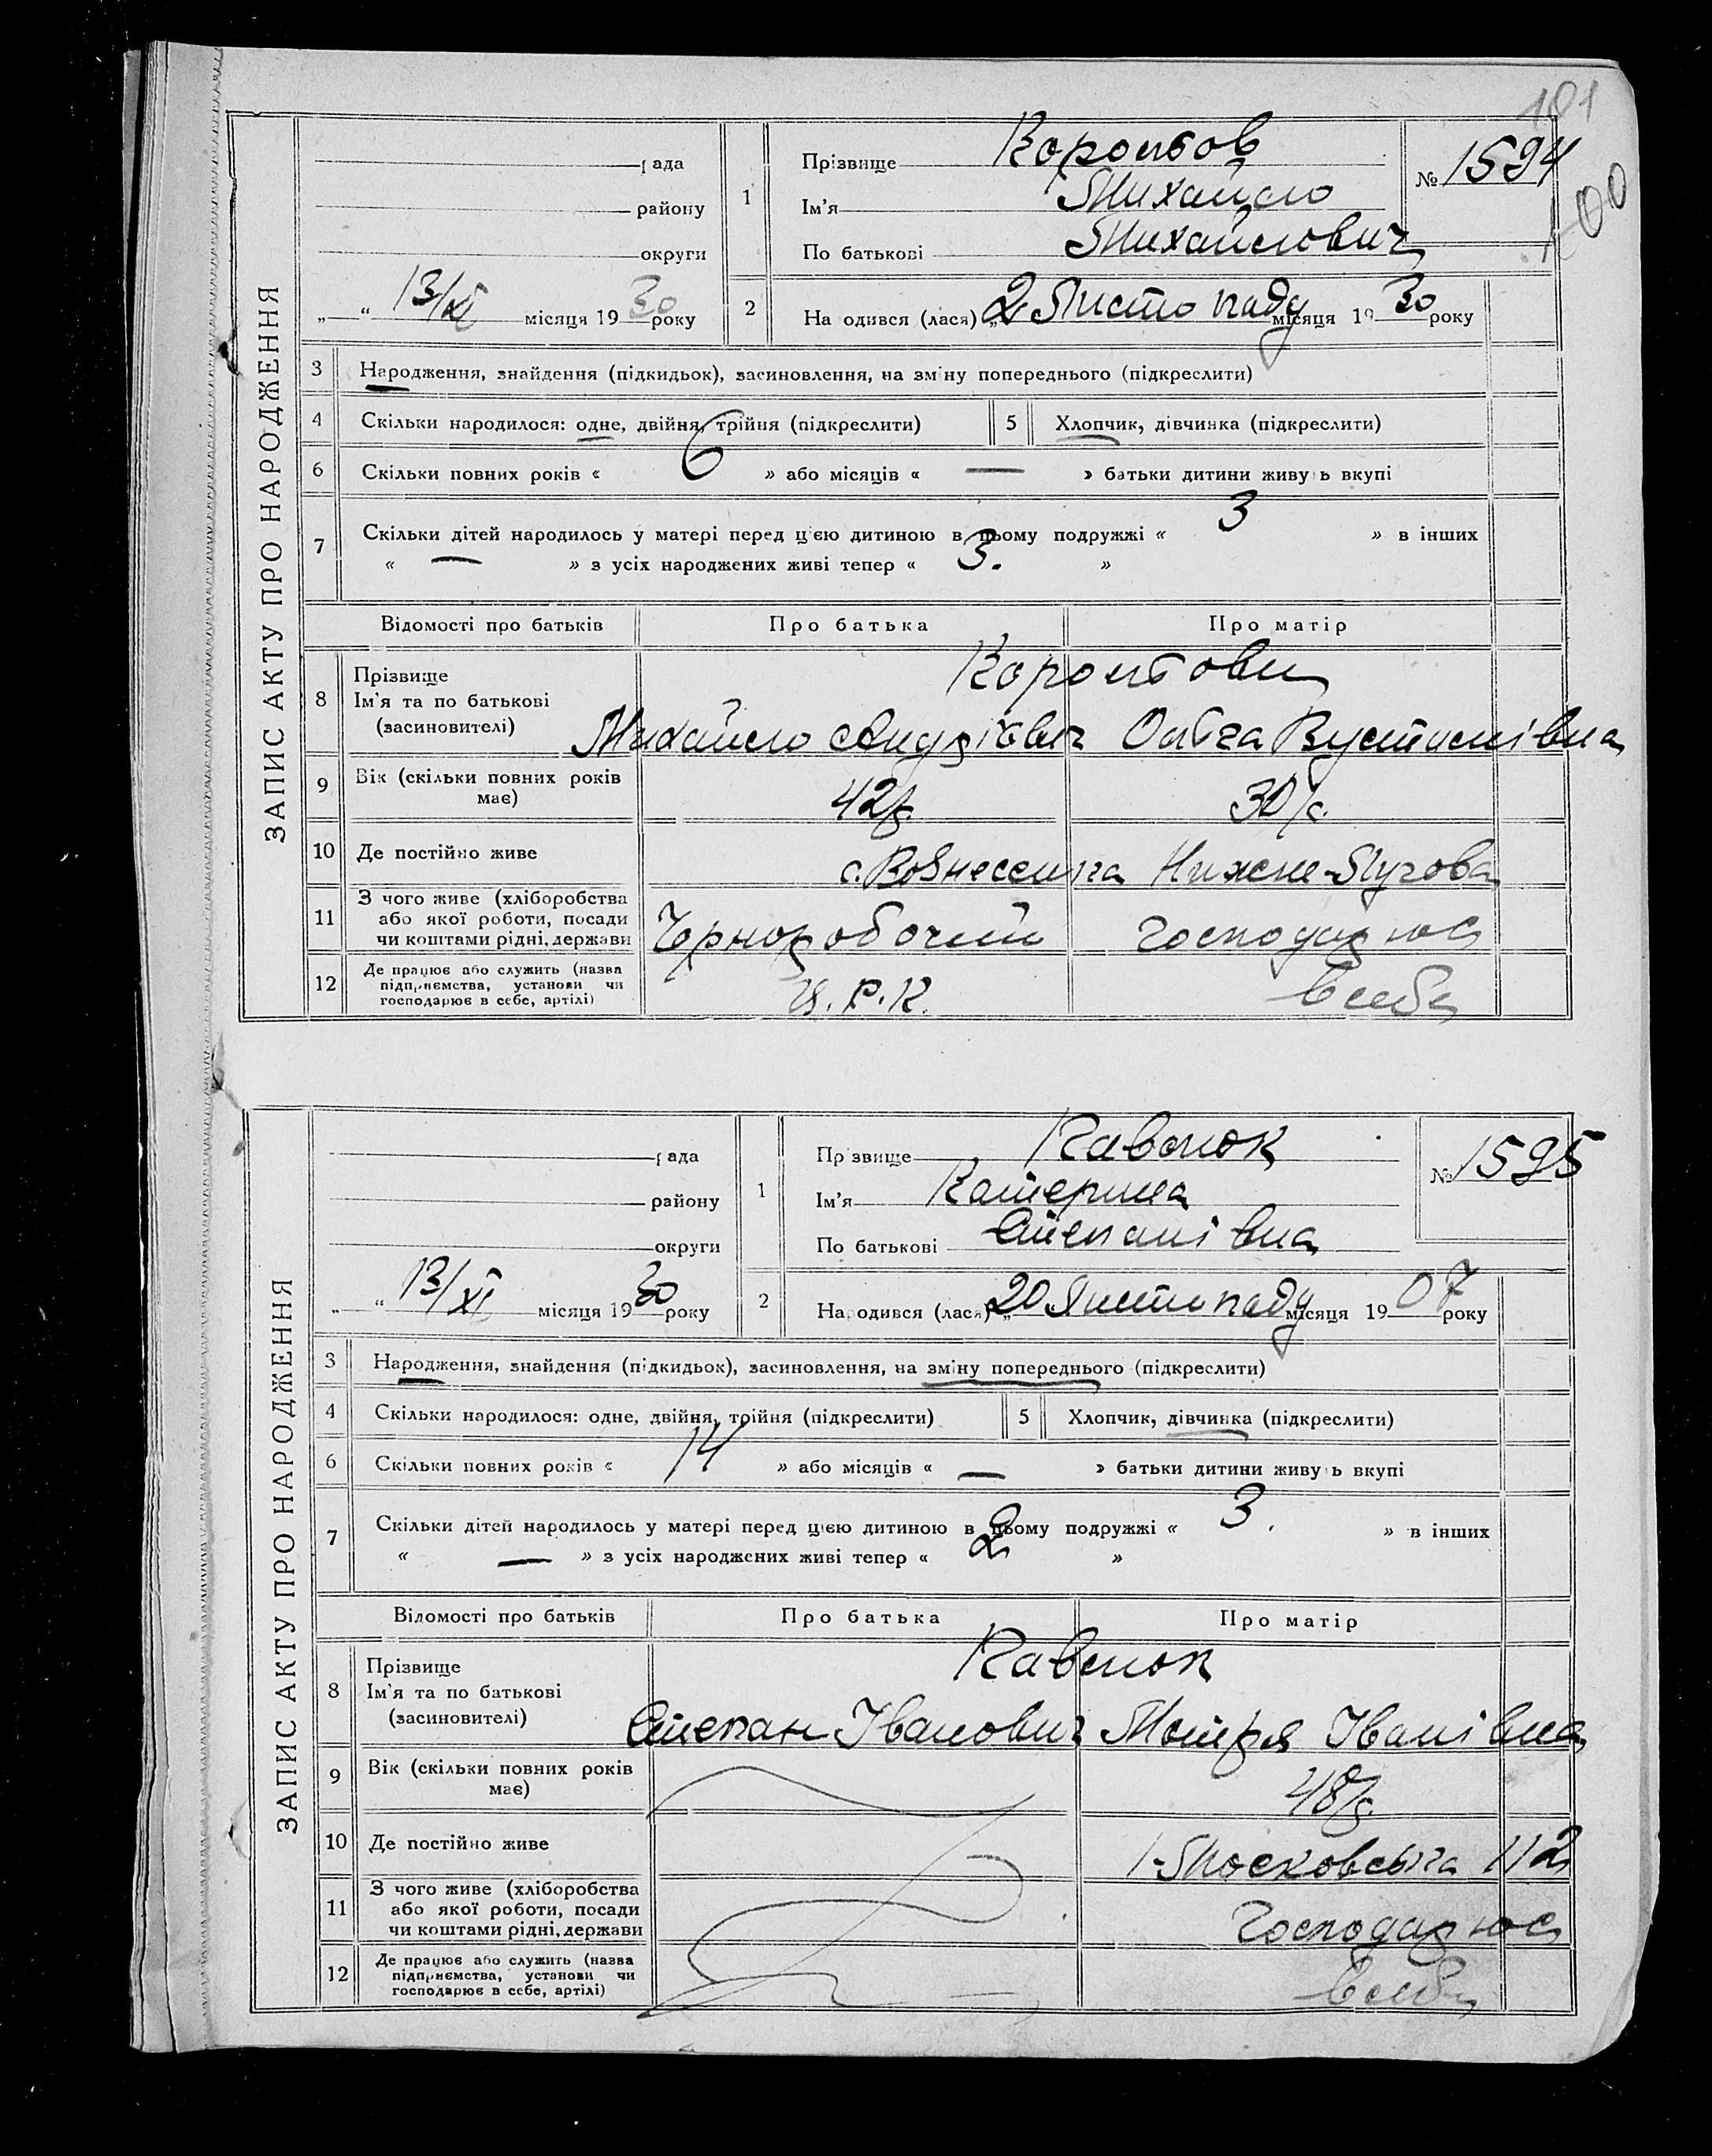 101
100
ЗАПИС АКТУ ПРО НАРОДЖЕННЯ
рада
району
округи
„ “ 13/XI місяця 1930 року
1
Прізвище Корольов
Ім'я Михайло
По батькові Михайлович
№ 1594
2
Народився (лася) „2 Листопаду місяця 1930 року
3 Народження, знайдення (підкидьок), засиновлення, на зміну попереднього (підкреслити)
4 Скільки народилося: одне, двійня, трійня (підкреслити) 5 Хлопчик, дівчинка (підкреслити)
6 Скільки повних років « 6 » або місяців « — » батьки дитини живуть вкупі
7 Скільки дітей народилось у матері перед цією дитиною в цьому подружжі « 3 » в інших
« — » з усіх народжених живі тепер « 3. »
Відомості про батьків Про батька Про матір
8 Прізвище
Ім'я та по батькові
(засиновителі)
Корольови
Михайло Андрієвич Ольга
9 Вік (скільки повних років має) 42р. 30р.
10 Де постійно живе с. Вознесенка Нижне-Лугова
11 З чого живе (хліборобства або якої роботи, посади чи коштами рідні, держави Чорноробочий Господарює
12 Де працює або служить (назва підприємства, установи чи господарює в себе, артілі) Р.К. в себе
ЗАПИС АКТУ ПРО НАРОДЖЕННЯ
рада
району
округи
„ “ 13/XI місяця 1930 року
1
Прізвище Кавонок
Ім'я Катерина
По батькові Степанівна
№ 1595
2
Народився (лася) „20 Листопаду місяця 1907 року
3 Народження, знайдення (підкидьок), засиновлення, на зміну попереднього (підкреслити)
4 Скільки народилося: одне, двійня, трійня (підкреслити) 5 Хлопчик, дівчинка (підкреслити)
6 Скільки повних років « 14 » або місяців « — » батьки дитини живуть вкупі
7 Скільки дітей народилось у матері перед цією дитиною в цьому подружжі « 3. » в інших
« — » з усіх народжених живі тепер « 2 »
Відомості про батьків Про батька Про матір
8 Прізвище
Ім'я та по батькові
(засиновителі)
Кавонок
Степан Іванович Мотря Іванівна
9 Вік (скільки повних років має) 48р.
10 Де постійно живе 1-Московська 112
11 З чого живе (хліборобства або якої роботи, посади чи коштами рідні, держави Господарює
12 Де працює або служить (назва підприємства, установи чи господарює в себе, артілі) в себе